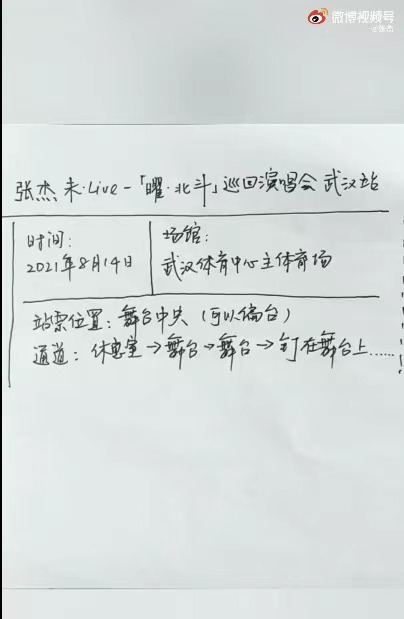 微博视频号
@张杰
张杰 未·Live-「曜·北斗」巡回演唱会 武汉站
时间:
2021年8月14日
场馆:
武汉体育中心主体育场
站票位置:舞台中央(可以偏台)
通道:休息室→舞台→舞台→钉在舞台上……